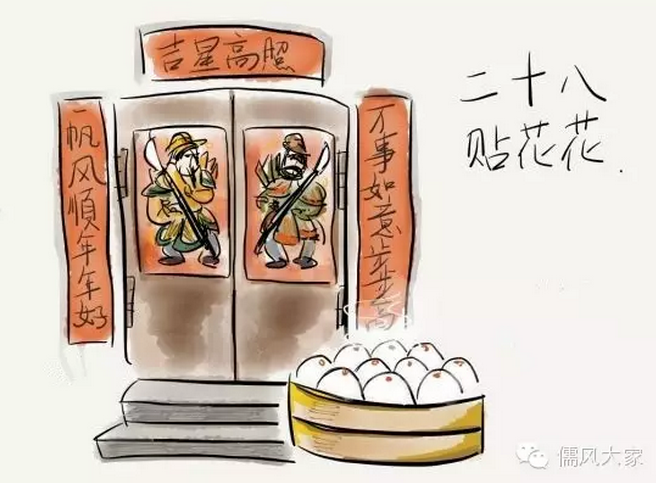 吉星高照
一帆风顺年年好
万事如意步步高
二十八
贴花花.
儒风大家